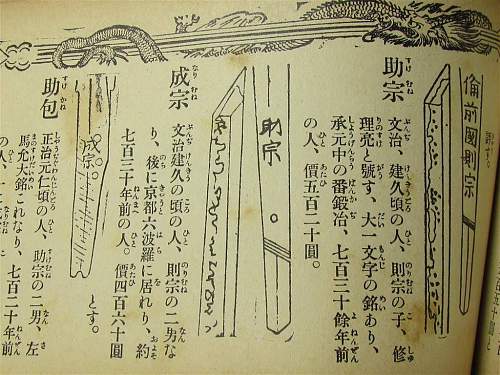 備前國則宗
助宗
文治、建久頃の人、則宗の子、修
理亮と號す、大一文字の銘あり、
承元中の番鍛冶、七百三十餘年前
の人、價五百二十圓。
助宗
成宗
文治建久の頃の人、則宗の二男な
り、後に京都六波羅に居れり、約
七百三十年前の人。價四百六十圓
とす。
成宗
助包
正治元仁頃の人、助宗の二男、左
馬允大銘これなり、七百二十年前
の人、